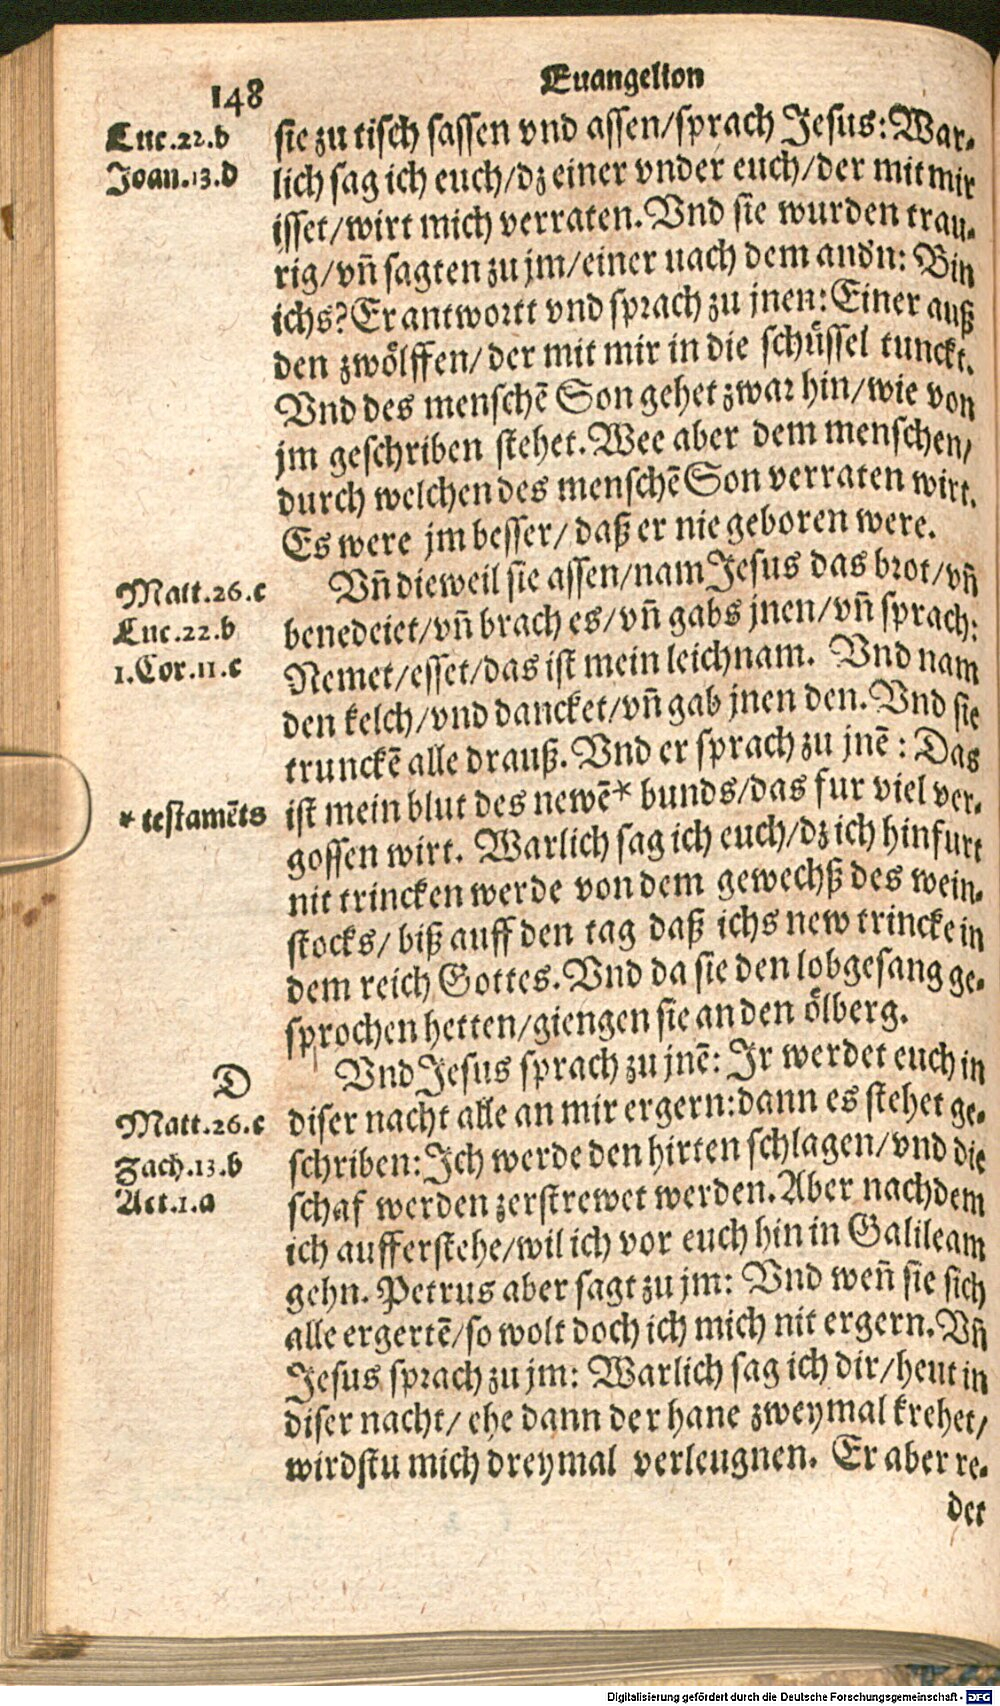 148
Euangelion
Luc.22.b
Joan.13.d
sie zu tisch sassen vnd assen/sprach Jesus: War-
lich sag ich euch/dz einer vnder euch/der mit mir
isset/wirt mich verraten. Vnd sie wurden trau-
rig/vñ sagten zu jm/einer nach dem andn: Bin
ichs? Er antwortt vnd sprach zu jnen: Einer auß
den zwölffen/ der mit mir in die schüssel tunckt.
Vnd des menschē Son gehet zwar hin/wie von
jm geschriben stehet. Wee aber dem menschen/
durch welchen des menschē Son verraten wirt.
Es were jm besser/ daß er nie geboren were.
Matt.26.c
Luc.22.b
1.Cor.11.c
Vñ dieweil sie assen/nam Jesus das brot/vñ
benedeiet/vñ brach es/vñ gabs jnen/vñ sprach:
Nemet/esset/das ist mein leichnam. Vnd nam
den kelch/vnd dancket/vñ gab jnen den. Vnd sie
trunckē alle drauß. Vnd er sprach zu jnē : Das
* testamēts
ist mein blut des newē* bunds/das fur viel ver-
gossen wirt. Warlich sag ich euch/dz ich hinfurt
nit trincken werde von dem gewechß des wein-
stocks/ biß auff den tag daß ichs new trincke in
dem reich Gottes. Vnd da sie den lobgesang ge-
sprochen hetten/giengen sie an den ölberg.
D
Matt.26.c
Zach.13.b
Act.1.a
Vnd Jesus sprach zu jnē: Jr werdet euch in
diser nacht alle an mir ergern: dann es stehet ge-
schriben: Jch werde den hirten schlagen/vnd die
schaf werden zerstrewet werden. Aber nachdem
ich aufferstehe/wil ich vor euch hin in Galileam
gehn. Petrus aber sagt zu jm: Vnd weñ sie sich
alle ergertē/so wolt doch ich mich nit ergern. Vñ
Jesus sprach zu jm: Warlich sag ich dir/heut in
diser nacht/ ehe dann der hane zweymal krehet/
wirdstu mich dreymal verleugnen. Er aber re-
det
Digitalisierung gefördert durch die Deutsche Forschungsgemeinschaft - DFG